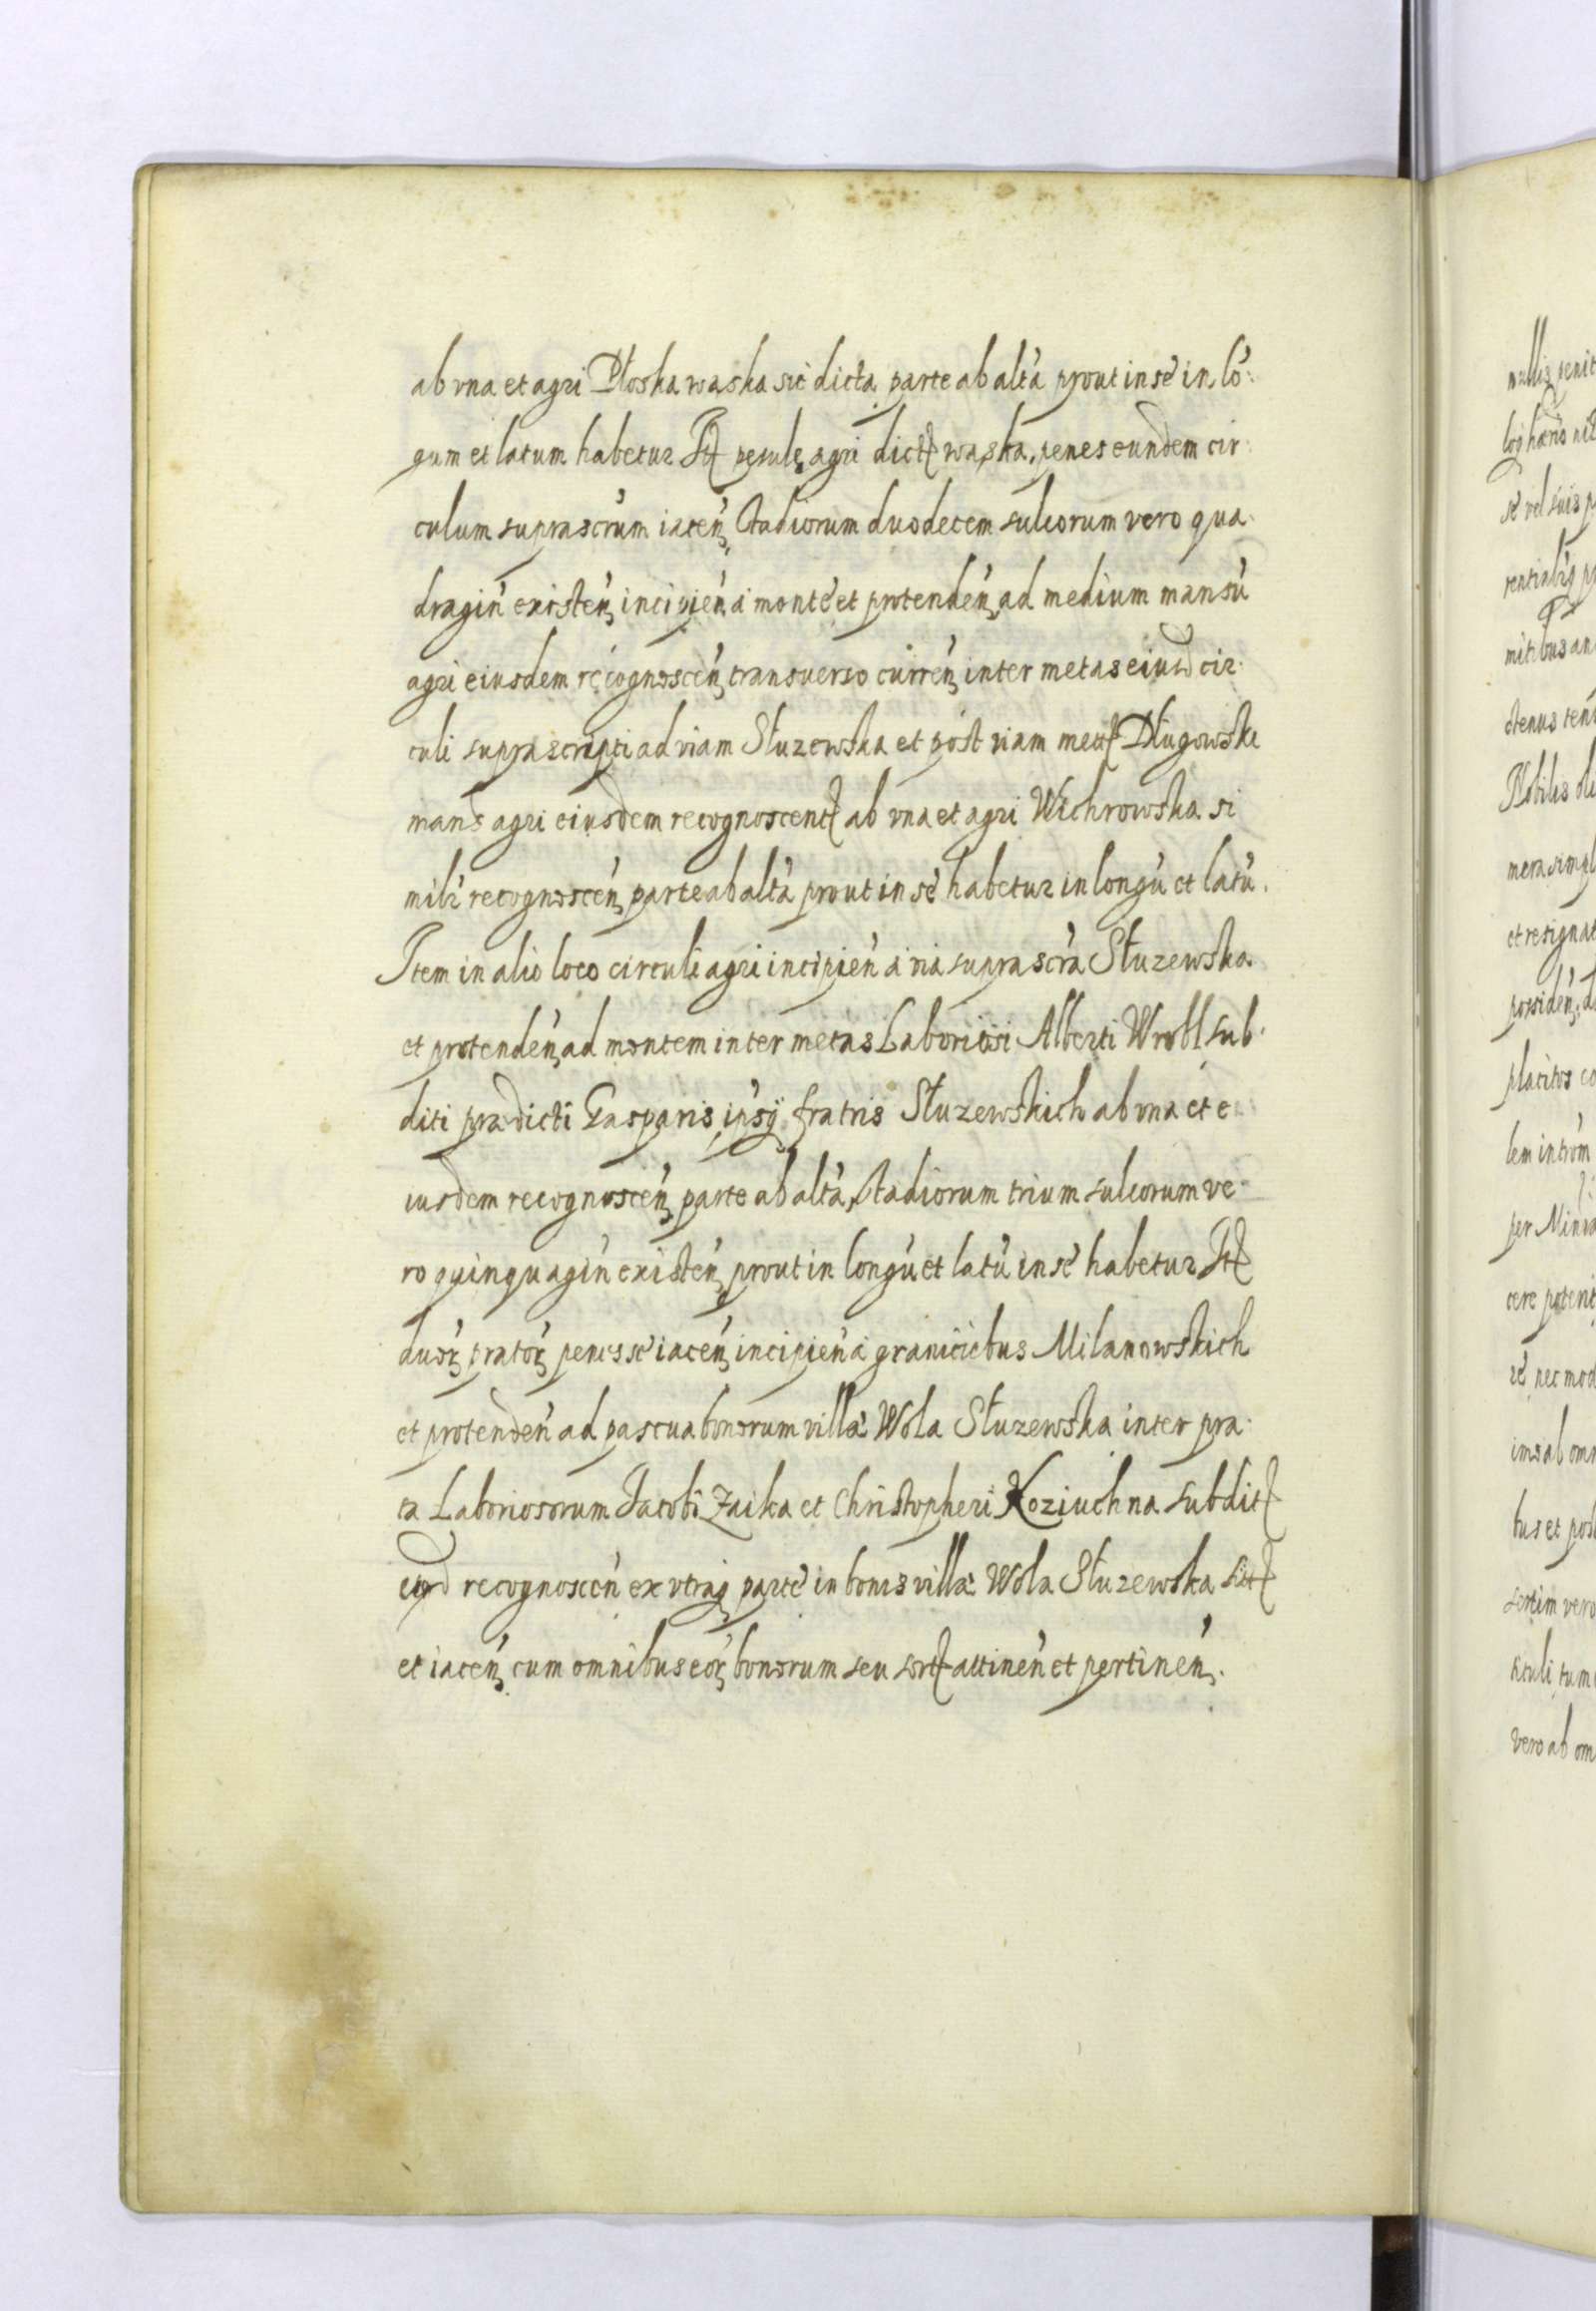 ab vna et agri Płoskawaska sic dicta parte ab altá prout in sé in ló:
gum et latum habetur It pesulę agri dict waska, penes eundem cir:
culum suprascrúm iaceń, stadiorum duodecem sulcorum vero qua:
dragiń existeń, incipień á monté et protendeń, ad medium mansú
agri eiusdem recognosceń, transuerso curreń, inter metas eiusd cir:
culi suprascripti ad viam Słuzewska et póst viam met Długowska
mans agri eiusdem recognoscent ab vna et agri Wichrowska si
milr recognosceń, parte ab altá prout in sé habetur in longú et latú.
Item in alio loco circuli agri incipień á via suprascrá Słuzewska
et protendeń, ad montem inter metas Laboriosi Alberti Wrobl sub:
diti prædicti Gasparis ipsÿ fratris Słuzewskich ab vna et e
iusdem recognosceń, parte ab altá, stadiorum trium sulcorum ve:
ro quinquagiń existeń, prout in longú et latú in sé habetur It
duor, prator, penes sé iaceń, incipień á granicicbus Milanowskich
et protendeń ad pascua bonorum villæ Wola Słuzewska inter pra:
ta Laboriosorum Jacobi Zaika et Christopheri Koziuchna subdit
eord recognosceń ex vtraq parté in bonis villæ Wola Słuzewska sit
et iaceń, cum omnibus eor, bonorum seu sort attineń et pertineń.
nullis
Nobiles
et resignat
placitos
per
vero ab om